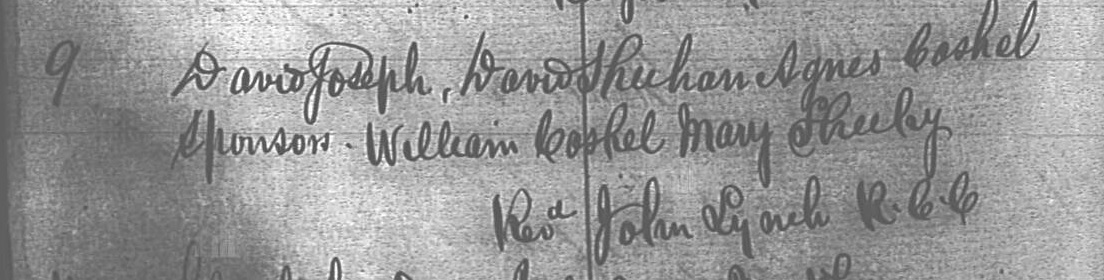 9 David Joseph, David Sheehan Agnes Coshel
Sponsors. William Coshel Mary Sheehy
Revd John Lynch R.C.C